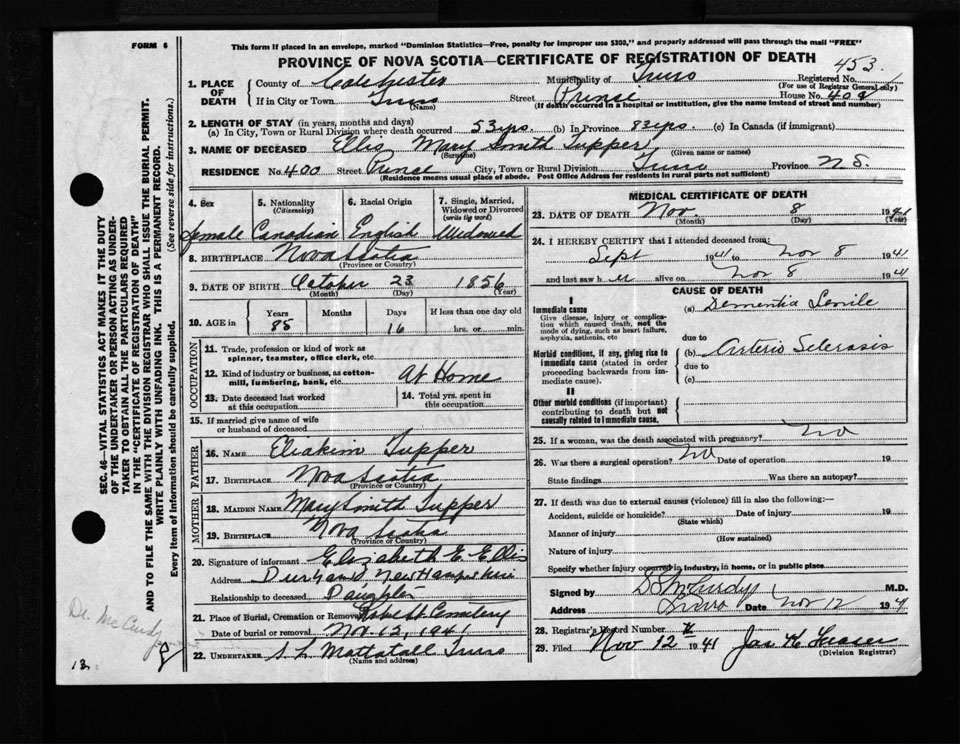 FORM 6
This form if placed in an envelope, marked "Dominion Statistics—Free, penalty for improper use $300," and properly addressed will pass through the mail "FREE"
PROVINCE OF NOVA SCOTIA—CERTIFICATE OF REGISTRATION OF DEATH
453
1. PLACE OF DEATH
County of Colchester Municipality of Truro Registered No.
(For use of Registrar General only)
If in City or Town Truro Street Prince House No.
(Name) (If death occurred in a hospital or institution, give the name instead of street and number)
2. LENGTH OF STAY (in years, months and days)
(a) In City, Town or Rural Division where death occurred 53 yrs. (b) In Province 83 yrs. (c) In Canada (if immigrant)
3. NAME OF DECEASED Ellis Mary Smith Tupper
(Surname) (Given name or names)
RESIDENCE No. 400 Street Prince City, Town or Rural Division Truro Province N.S.
(Residence means usual place of abode. Post Office Address for residents in rural parts not sufficient)
4. Sex
5. Nationality (Citizenship)
6. Racial Origin
7. Single, Married, Widowed or Divorced (write the word)
Female Canadian English Widowed
8. BIRTHPLACE Nova Scotia
(Province or Country)
9. DATE OF BIRTH October 23 1856
(Month) (Day) (Year)
10. AGE in Years Months Days If less than one day old
85 16 hrs. or min.
OCCUPATION
11. Trade, profession or kind of work as spinner, teamster, office clerk, etc.
12. Kind of industry or business, as cotton-mill, lumbering, bank, etc. At Home
13. Date deceased last worked at this occupation
14. Total yrs. spent in this occupation
15. If married give name of wife or husband of deceased
FATHER
16. NAME Eliakim Tupper
17. BIRTHPLACE Nova Scotia
(Province or Country)
MOTHER
18. MAIDEN NAME Mary Smith Tupper
19. BIRTHPLACE Nova Scotia
(Province or Country)
20. Signature of informant Elizabeth E. Ellis
Address New Hampshire
Relationship to deceased Daughter
21. Place of Burial, Cremation or Removal Cemetery
Date of burial or removal Nov. 12, 1941
22. UNDERTAKER Mattatall Truro
(Name and address)
MEDICAL CERTIFICATE OF DEATH
23. DATE OF DEATH Nov. 8 1941
(Month) (Day) (Year)
24. I HEREBY CERTIFY that I attended deceased from:
Sept 1941 to Nov 8 1941
and last saw h er alive on Nov 8 1941
CAUSE OF DEATH
I
Immediate cause
Give disease, injury or complication which caused death, not the mode of dying, such as heart failure, asphyxia, asthenia, etc
(a) Dementia Senile
due to
Morbid conditions, if any, giving rise to immediate cause (stated in order proceeding backwards from immediate cause).
(b) Arterio Sclerosis
due to
(c)
II
Other morbid conditions (if important) contributing to death but not causally related to immediate cause.
25. If a woman, was the death associated with pregnancy? No
26. Was there a surgical operation? No Date of operation 19
State findings Was there an autopsy?
27. If death was due to external causes (violence) fill in also the following:—
Accident, suicide or homicide? Date of injury 19
(State which)
Manner of injury
(How sustained)
Nature of injury
Specify whether injury occurred in industry, in home, or in public place
Signed by McCurdy M.D.
Address Truro Date Nov 12 194
28. Registrar's Record Number
29. Filed Nov 12 1941 Jas
(Division Registrar)
SEC. 46—VITAL STATISTICS ACT MAKES IT THE DUTY
OF THE UNDERTAKER OR PERSON ACTING AS UNDER-
TAKER TO OBTAIN ALL THE PARTICULARS REQUIRED
IN THE "CERTIFICATE OF REGISTRATION OF DEATH"
AND TO FILE THE SAME WITH THE DIVISION REGISTRAR WHO SHALL ISSUE THE BURIAL PERMIT.
WRITE PLAINLY WITH UNFADING INK. THIS IS A PERMANENT RECORD.
Every item of information should be carefully supplied. (See reverse side for instructions.)
Dr. McCurdy